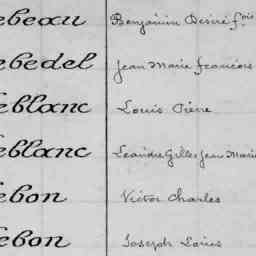 ebeau Benjamin Désiré fois
ebedel Jean Marie francois
eblanc Louis Pierre
eblanc Leandre Gilles Jean Marie
ebon Victor Charles
ebon Joseph Louis